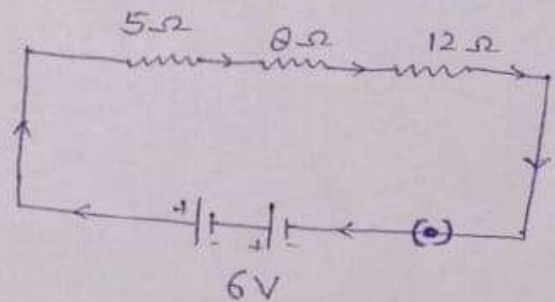 5Ω 8Ω 12Ω
+ - + -
6V